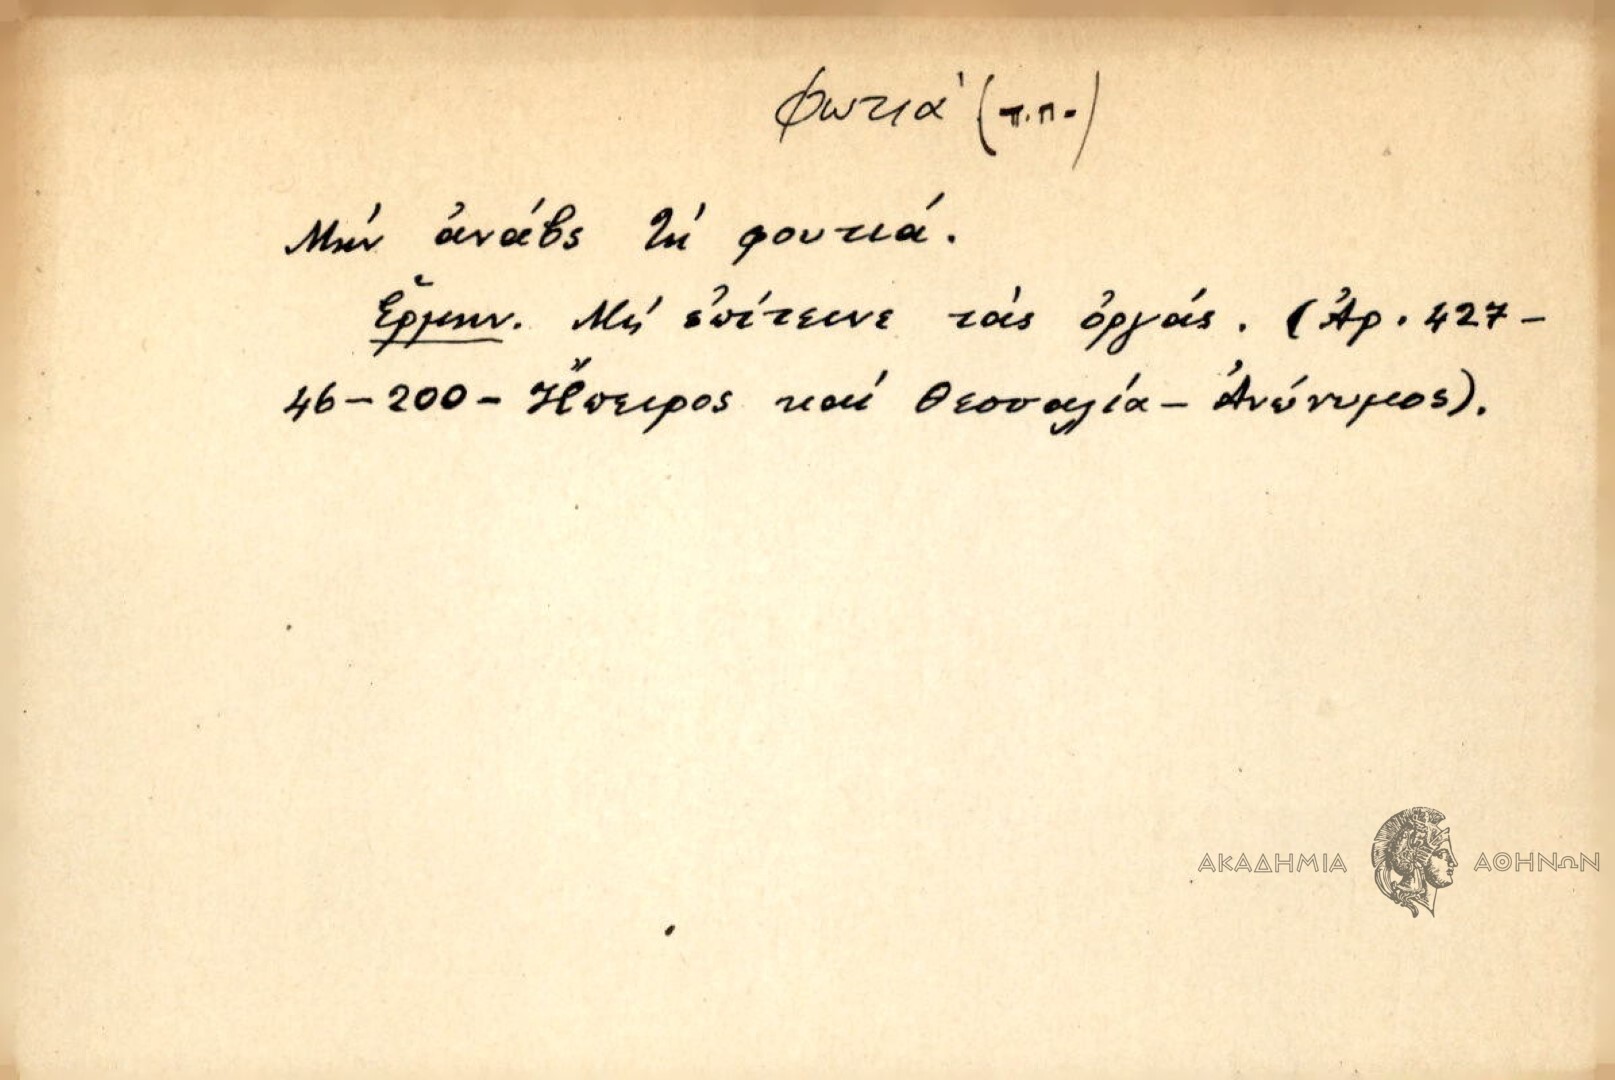 φωτιά (τ.π.)
Μήν ἀνάβς τή φουτιά.
Ἑρμην. Μή ἐπίτεινε τάς ὀργάς. (Ἀρ. 427-
46-200- Ἤπειρος καί Θεσσαλία - Ἀνώνυμος).
ΑΚΑΔΗΜΙΑ ΑΘΗΝΩΝ